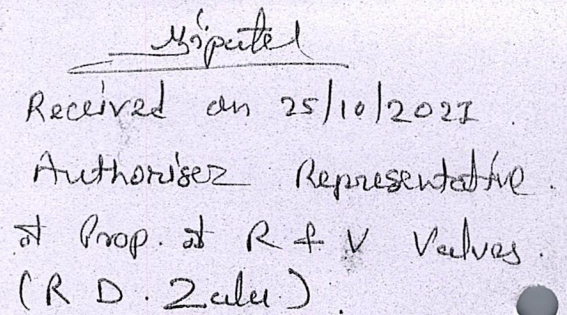 Received on 25/10/2021.
Authoriser Representative.
of Prop. of R & V Valves.
(R D. Zala.).